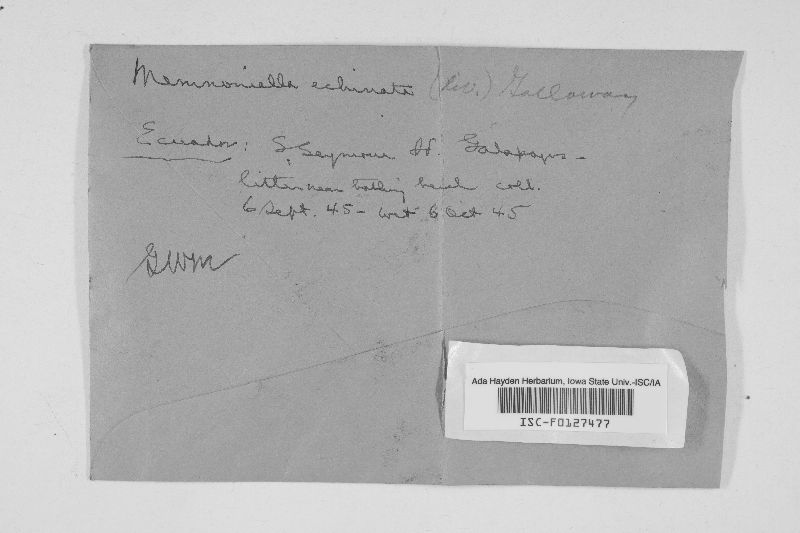 Memnoniella echinata (Riv.) Galloway
Ecuador: S. Seymour Id. Galapagos -
litter near bathing beach coll.
6 Sept. 45 - wet 6 Oct 45
GWM
Ada Hayden Herbarium, Iowa State Univ.-ISC/IA
ISC-F0127477